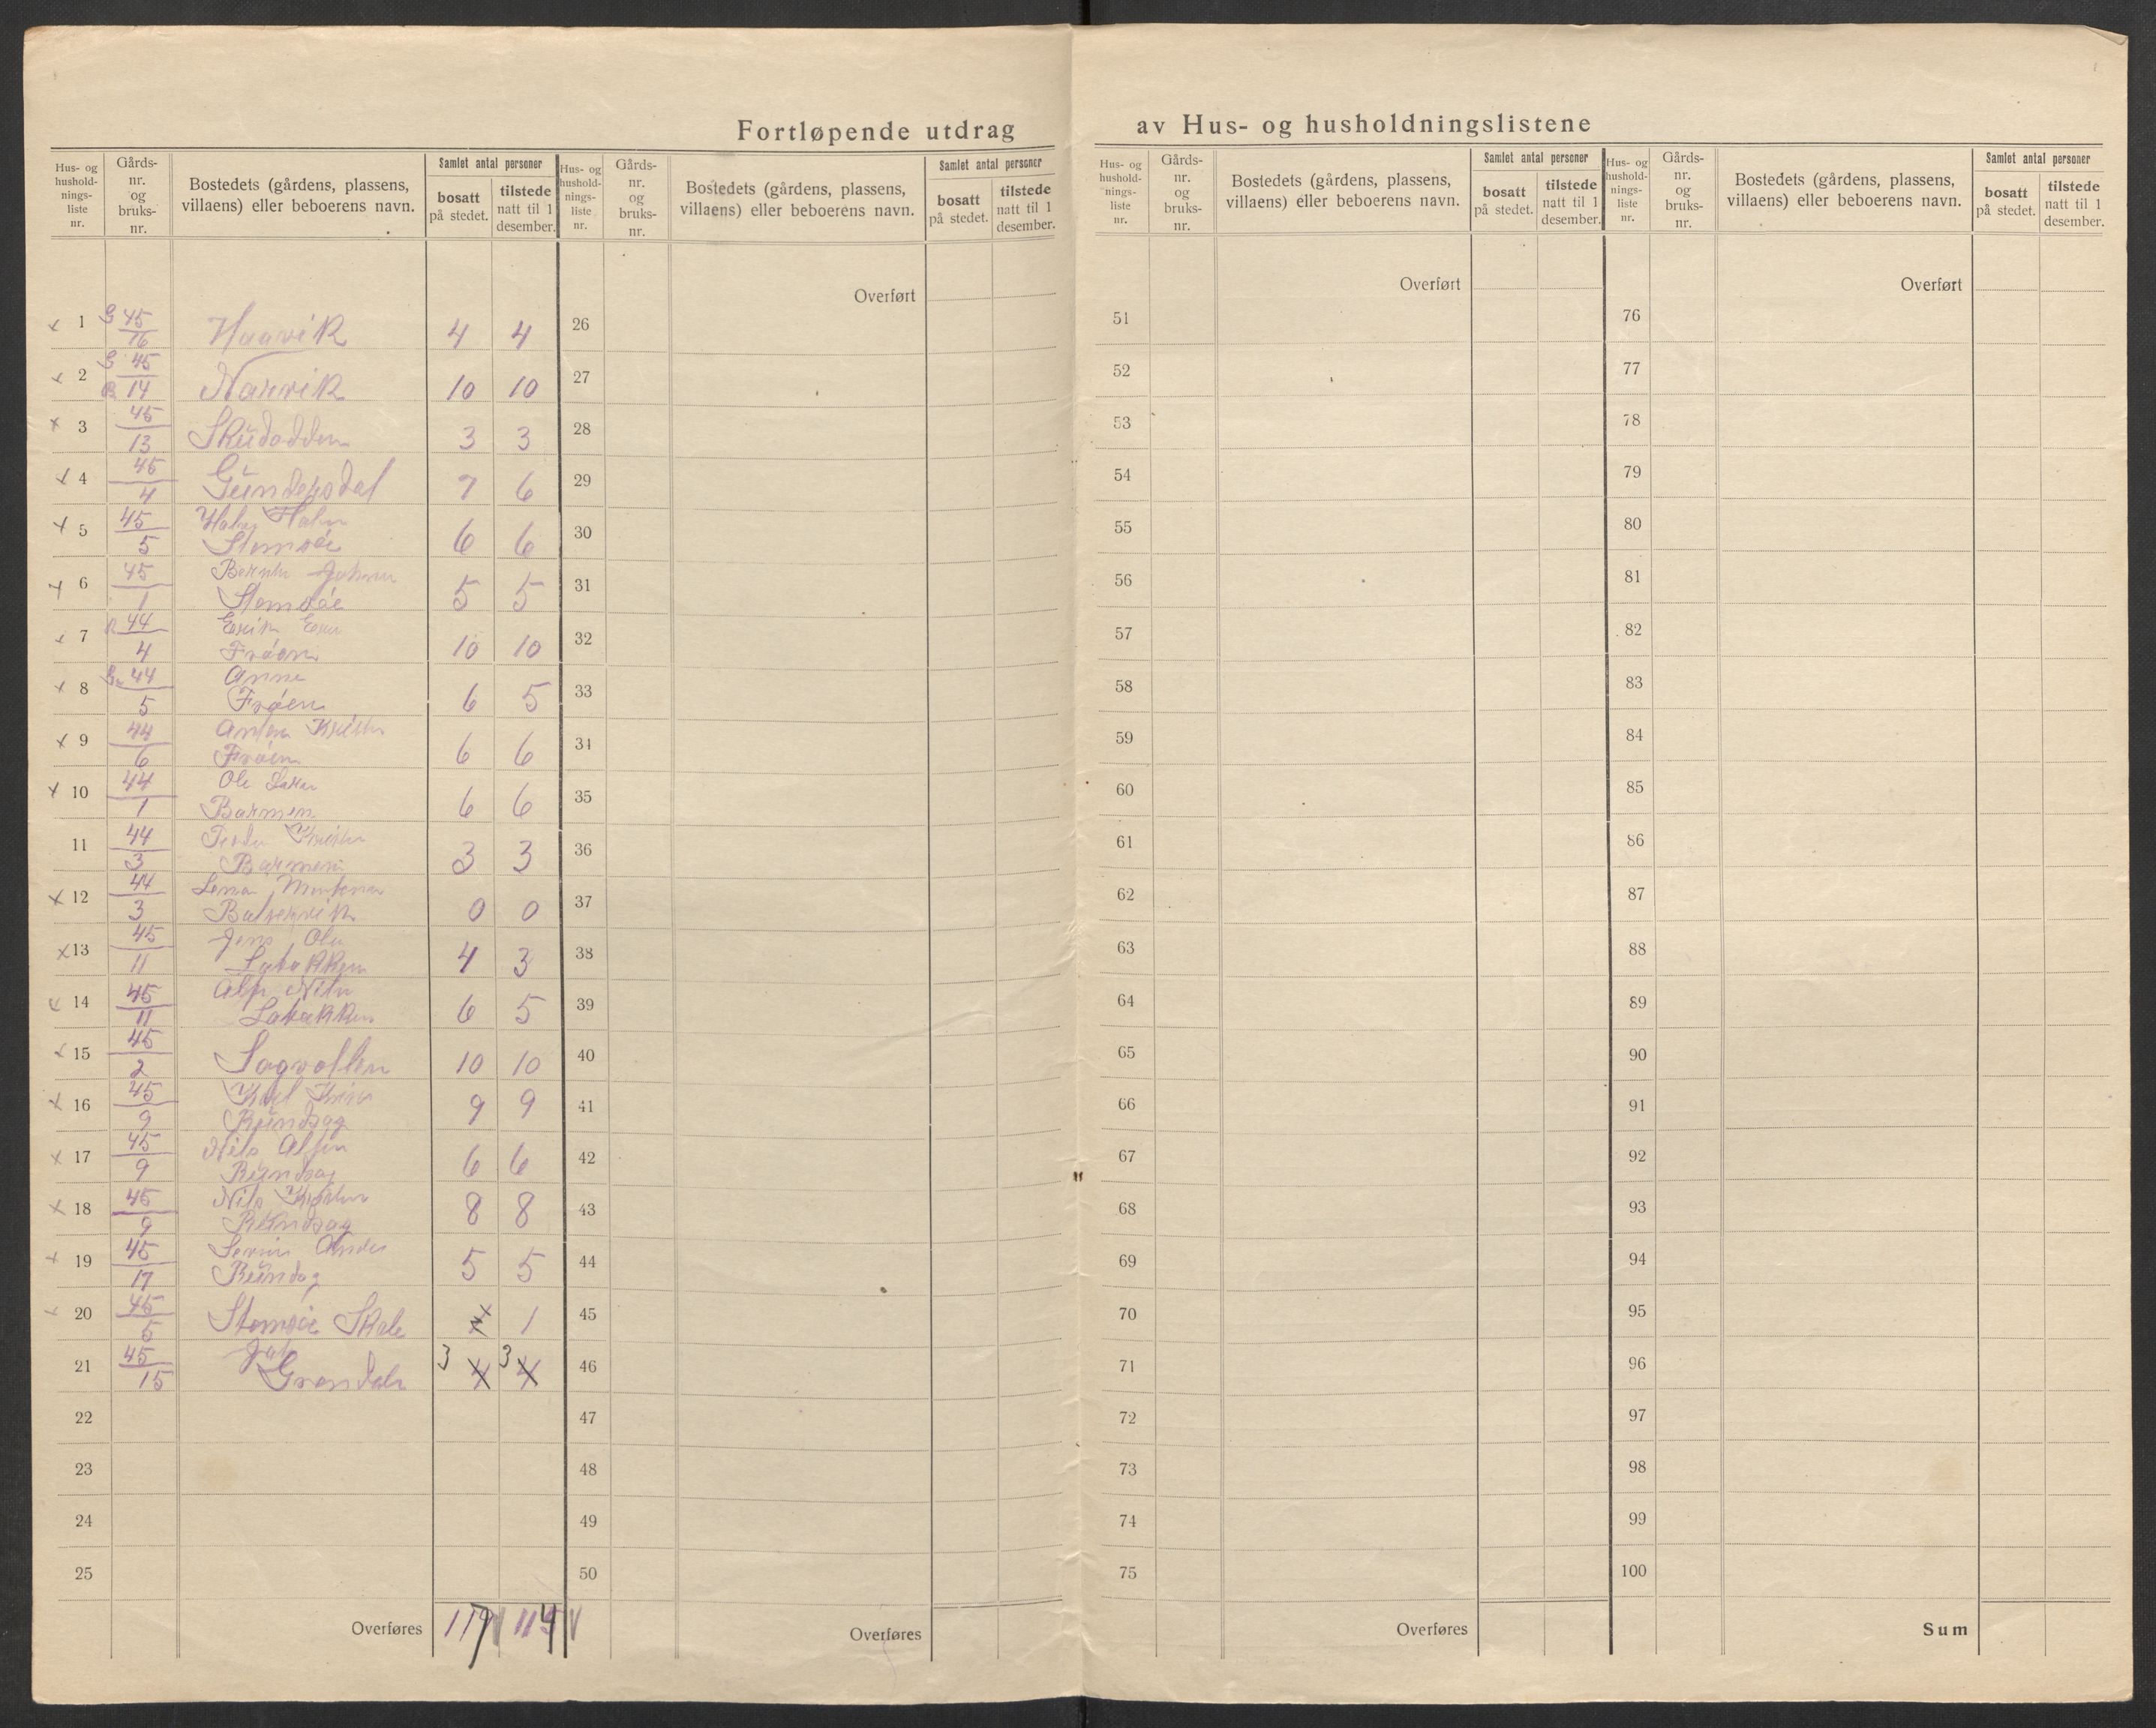 Fortløpende utdrag av Hus- og husholdningslistene
Hus- og husholdnings-liste nr. | Gårds-nr. og bruks-nr. | Bostedets (gårdens, plassens, villaens) eller beboerens navn. | Samlet antal personer | bosatt på stedet. | tilstede natt til 1 desember.
x 1 G 45/16 Haavik 4 4
x 2 G 45 B 14 Narvik 10 10
x 3 45/13 Skudodden 3 3
x 4 45/4 Gundersdal 7 6
x 5 45/5 Stomsøe 6 6
x 6 45/1 Johan Stomsøe 5 5
x 7 44/4 Erik Frøen 10 10
x 8 44/5 Anne Frøen 6 5
x 9 44/6 Anton Frøen 6 6
x 10 44/1 Ole Barmen 6 6
11 44/3 Barmen 3 3
x 12 44/3 0 0
x 13 45/11 Jens Ole 4 3
x 14 45/11 6 5
x 15 45/2 Sagvollen 10 10
x 16 45/9 Rundsag 9 9
x 17 45/9 Nils Rundsag 6 6
x 18 45/9 Nils Rundsag 8 8
x 19 45/17 Rundsag 5 5
x 20 45/5 Stomsøe Skole x 1
21 45/15 Grøndal 3 4 3 4
22
23
24
25
Overføres 117 114
Hus- og husholdnings-liste nr. | Gårds-nr. og bruks-nr. | Bostedets (gårdens, plassens, villaens) eller beboerens navn. | Samlet antal personer | bosatt på stedet. | tilstede natt til 1 desember.
Overført
26
27
28
29
30
31
32
33
34
35
36
37
38
39
40
41
42
43
44
45
46
47
48
49
50
Overføres
Hus- og husholdnings-liste nr. | Gårds-nr. og bruks-nr. | Bostedets (gårdens, plassens, villaens) eller beboerens navn. | Samlet antal personer | bosatt på stedet. | tilstede natt til 1 desember.
Overført
51
52
53
54
55
56
57
58
59
60
61
62
63
64
65
66
67
68
69
70
71
72
73
74
75
Overføres
Hus- og husholdnings-liste nr. | Gårds-nr. og bruks-nr. | Bostedets (gårdens, plassens, villaens) eller beboerens navn. | Samlet antal personer | bosatt på stedet. | tilstede natt til 1 desember.
Overført
76
77
78
79
80
81
82
83
84
85
86
87
88
89
90
91
92
93
94
95
96
97
98
99
100
Sum